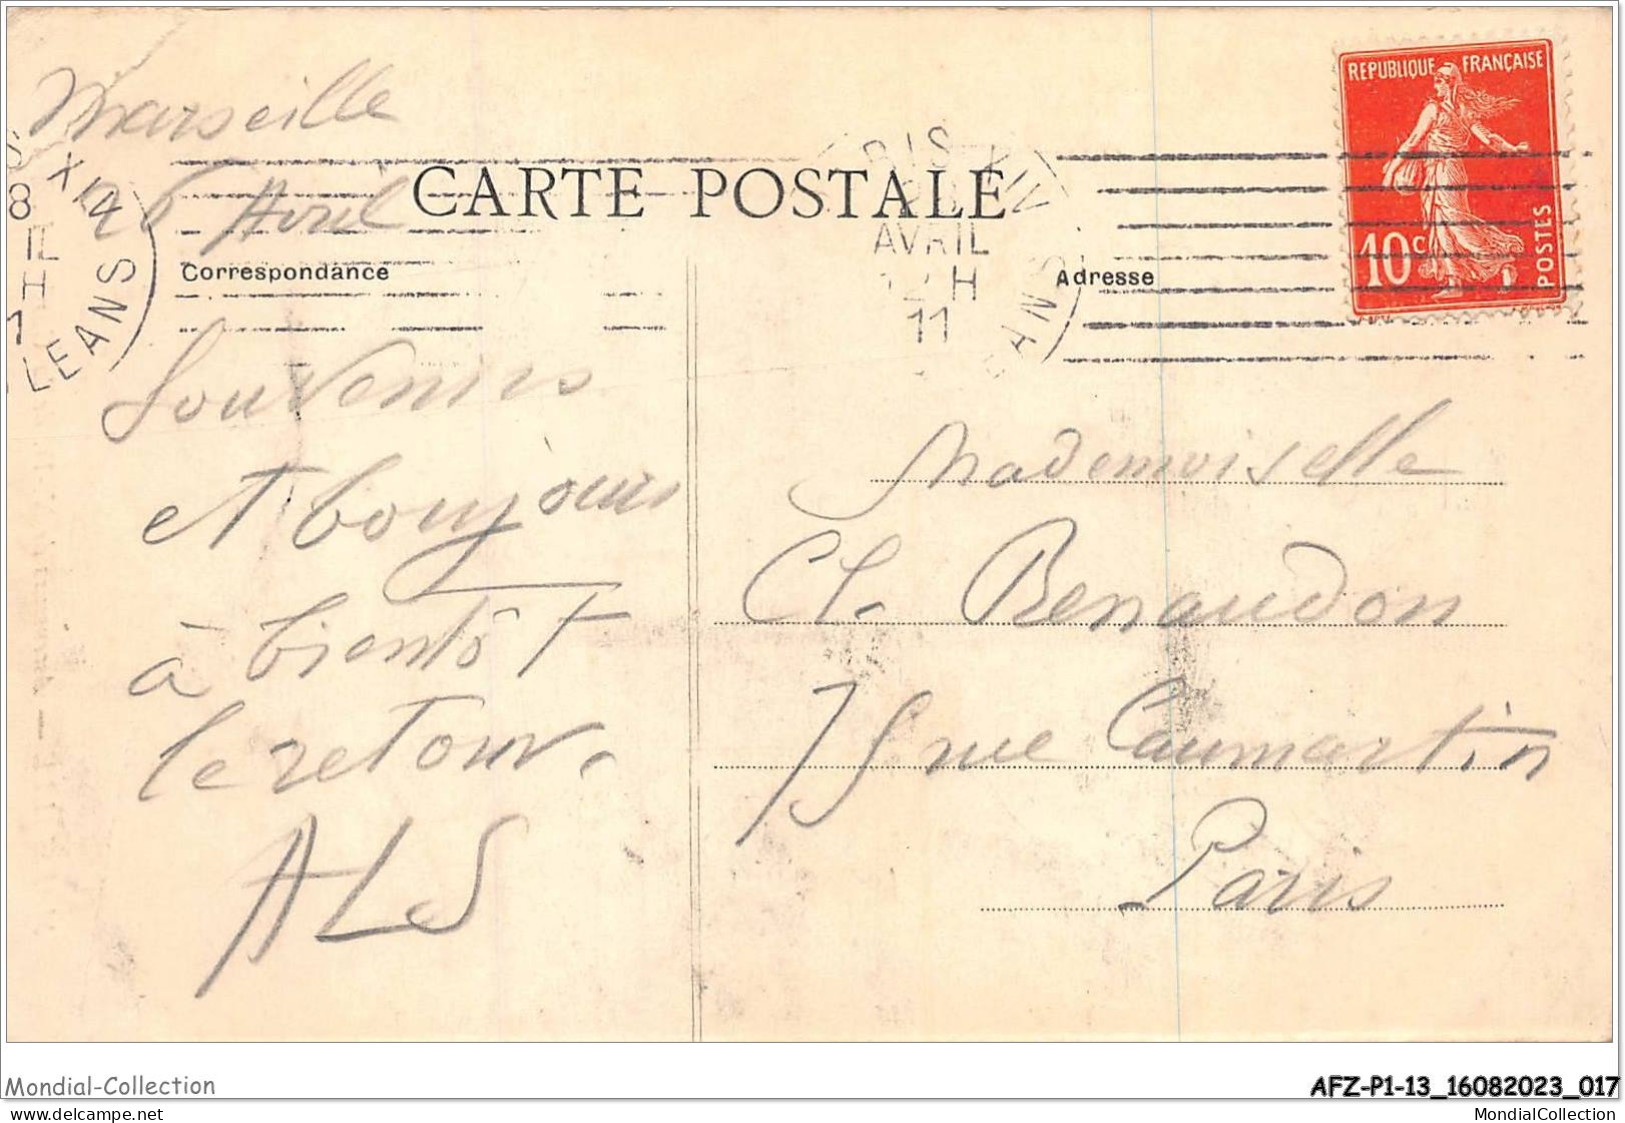 Marseille
26 Avril
CARTE POSTALE
Correspondance
Adresse
REPUBLIQUE FRANÇAISE
10c
POSTES
XIV
8
H
LEANS
RIS XIV
AVRIL
H
11
ANS
Souvenirs
et bonjours
à bientôt
le retour.
ALS
Mademoiselle
Cl. Renaudon
rue Caumartin
Paris
Mondial-Collection
AFZ-P1-13_16082023_017
www.delcampe.net
MondialCollection